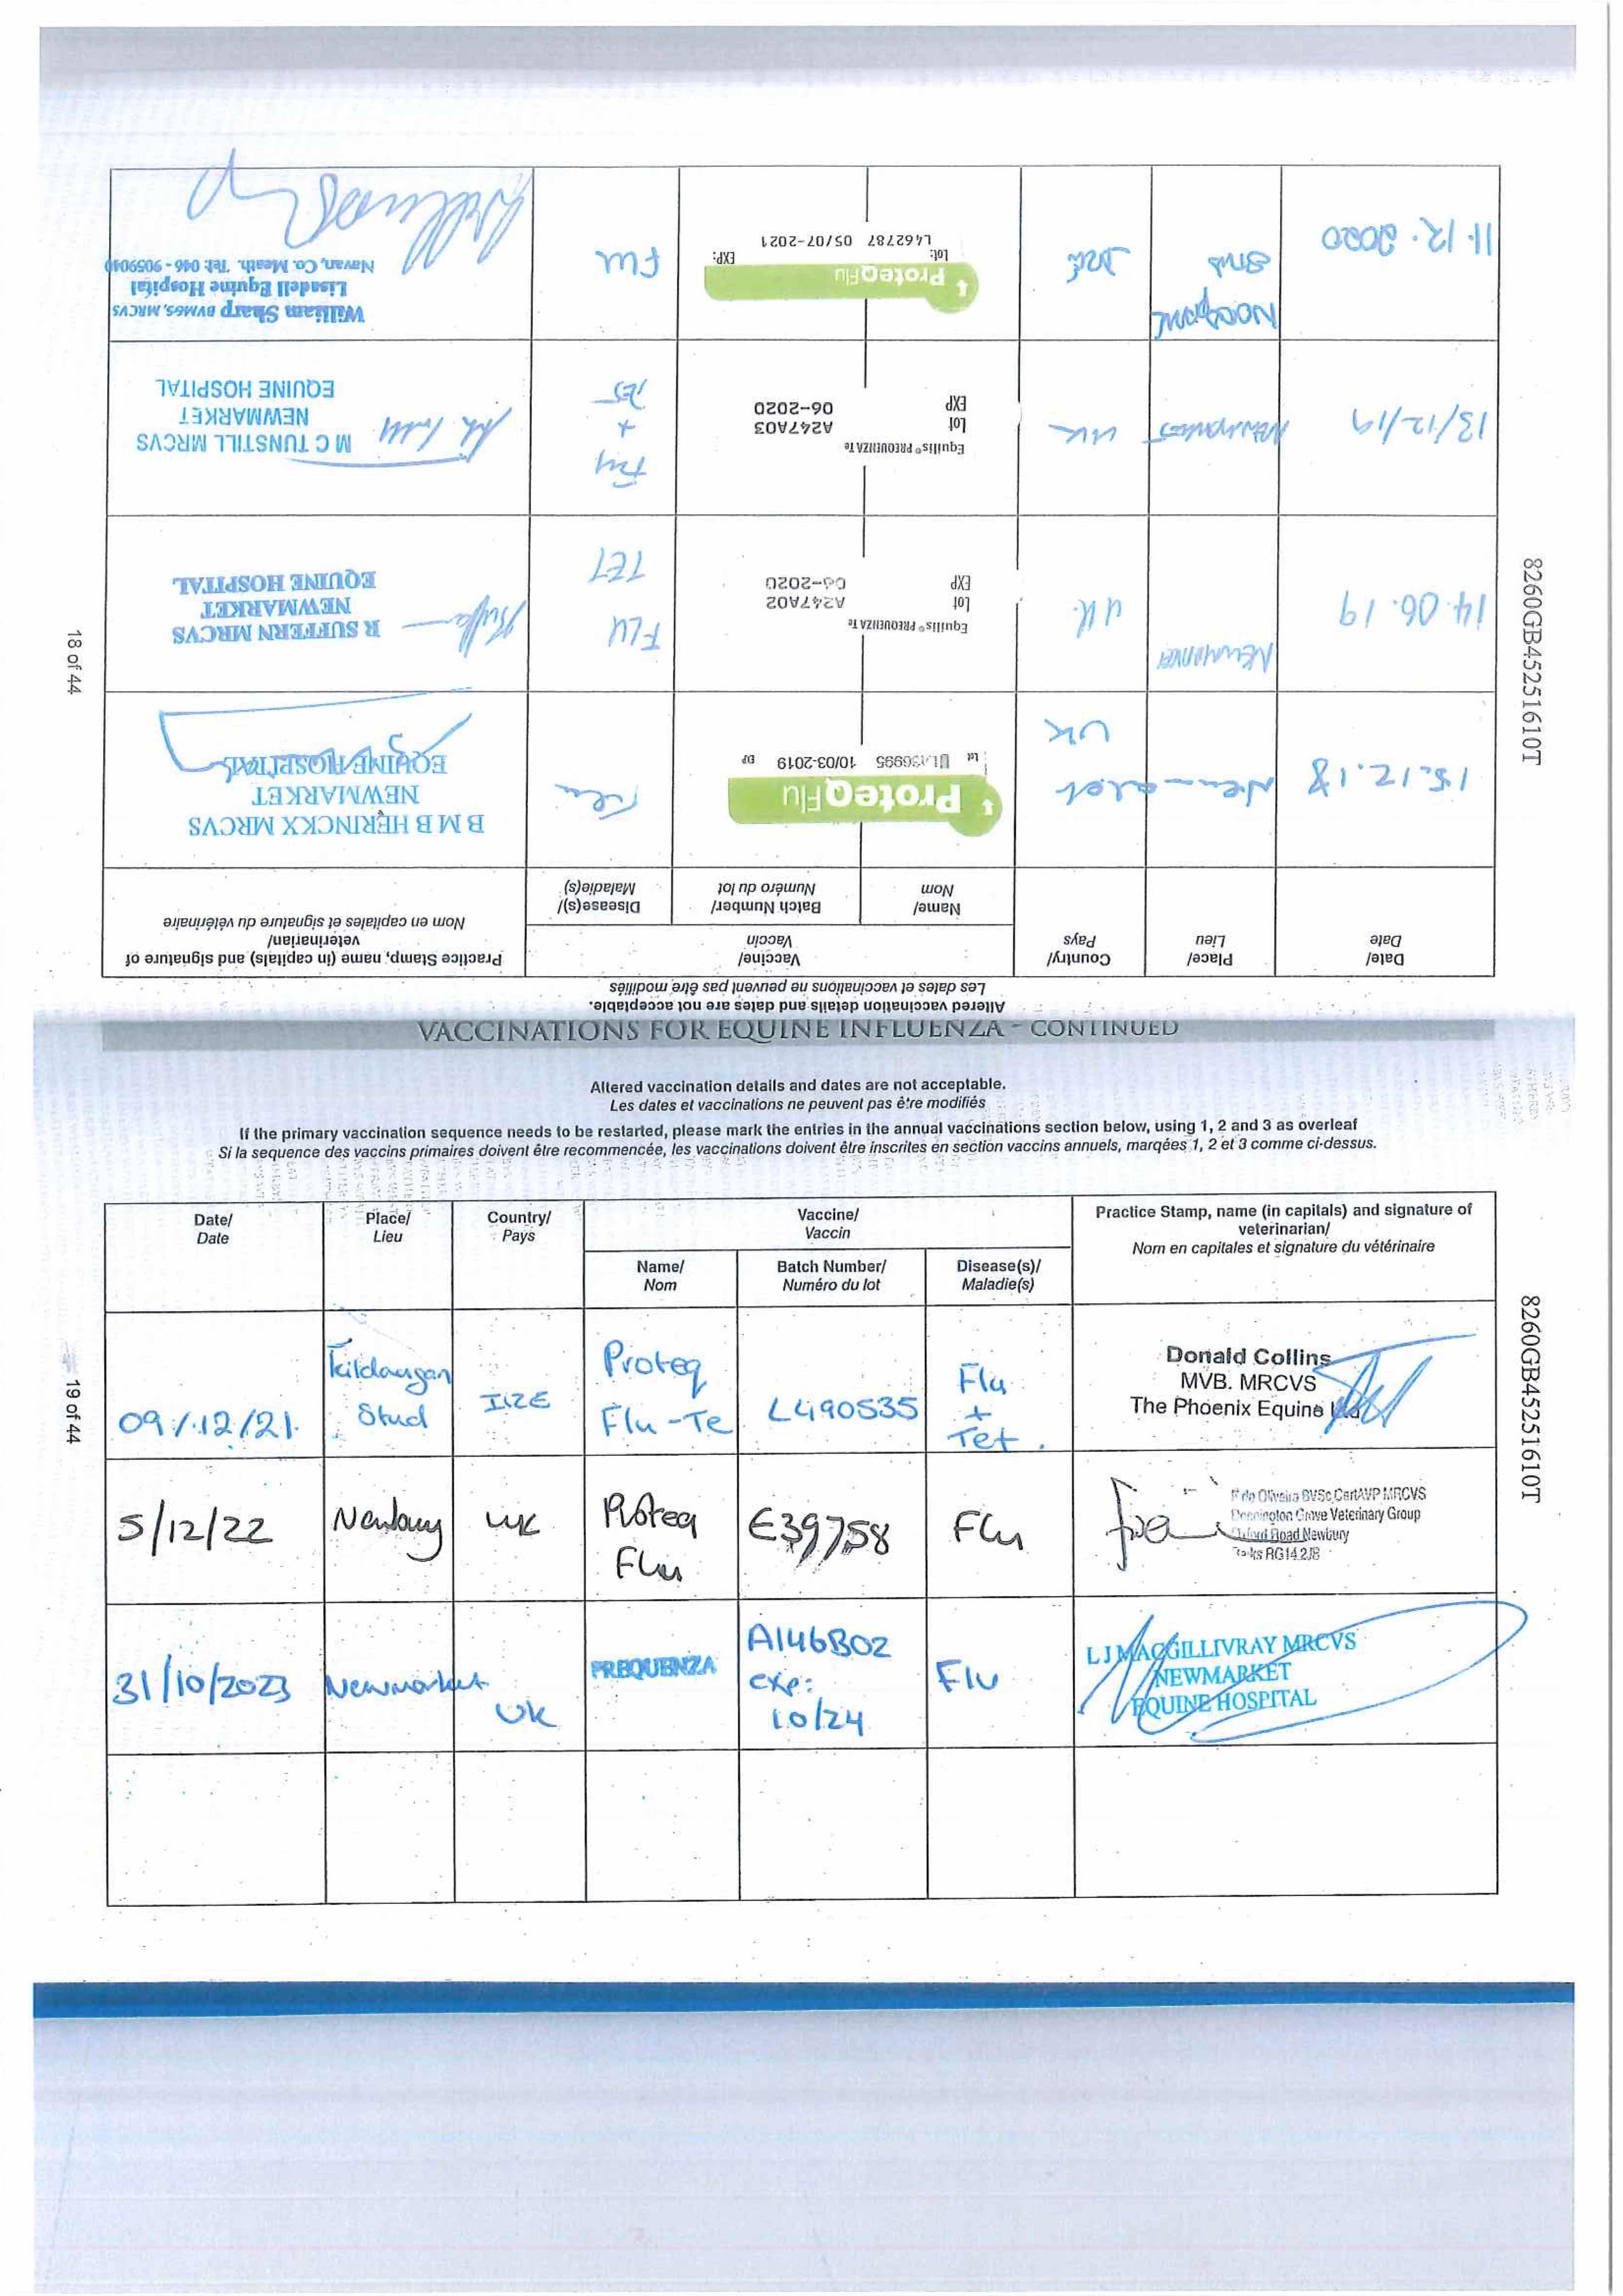 Altered vaccination details and dates are not acceptable.
Les dates et vaccinations ne peuvent pas être modifiés
Date/
Date
Place/
Lieu
Country/
Pays
Vaccine/
Vaccin
Name/
Nom
Batch Number/
Numéro du lot
Disease(s)/
Maladie(s)
Practice Stamp, name (in capitals) and signature of
veterinarian/
Nom en capitales et signature du vétérinaire
15.12.18
UK
ProteqFlu
Lot
10/03-2019
EXP
B M B HERINCKX MRCVS
NEWMARKET
EQUINE HOSPITAL
14.06.19
Newmarket
U.K.
Equilis® PREQUENZA Te
Lot A247A02
EXP
FLU
TET
R SUFFERN MRCVS
NEWMARKET
EQUINE HOSPITAL
13/12/19
Newmarket
UK
Equilis® PREQUENZA Te
Lot A247A03
EXP 06-2020
Flu
+
M C TUNSTILL MRCVS
NEWMARKET
EQUINE HOSPITAL
11.12.2020
Stud
IRE
ProteqFlu
Lot: EXP:
L462787 05/07-2021
Flu
William Sharp BVMBS, MRCVS
Lisadell Equine Hospital
Navan, Co. Meath. Tel: 046 - 9059040
8260GB45251610T
18 of 44
VACCINATIONS FOR EQUINE INFLUENZA - CONTINUED
Altered vaccination details and dates are not acceptable.
Les dates et vaccinations ne peuvent pas être modifiés
If the primary vaccination sequence needs to be restarted, please mark the entries in the annual vaccinations section below, using 1, 2 and 3 as overleaf
Si la sequence des vaccins primaires doivent être recommencée, les vaccinations doivent être inscrites en section vaccins annuels, marqées 1, 2 et 3 comme ci-dessus.
Date/
Date
Place/
Lieu
Country/
Pays
Vaccine/
Vaccin
Name/
Nom
Batch Number/
Numéro du lot
Disease(s)/
Maladie(s)
Practice Stamp, name (in capitals) and signature of
veterinarian/
Nom en capitales et signature du vétérinaire
09/12/21.
Kildangan
Stud
IRE
Proteq
Flu-Te
L490535
Flu
+
Tet.
Donald Collins
MVB. MRCVS
The Phoenix Equine Ltd
5/12/22
Newbury
UK
Proteq
Flu
E39758
Flu
F de Oliveira BVSc CertAVP MRCVS
Donnington Grove Veterinary Group
Oxford Road Newbury
Berks RG14 2JB
31/10/2023
Newmarket
UK
PREQUENZA
A146B02
exp:
10/24
Flu
L J MACGILLIVRAY MRCVS
NEWMARKET
EQUINE HOSPITAL
8260GB45251610T
19 of 44